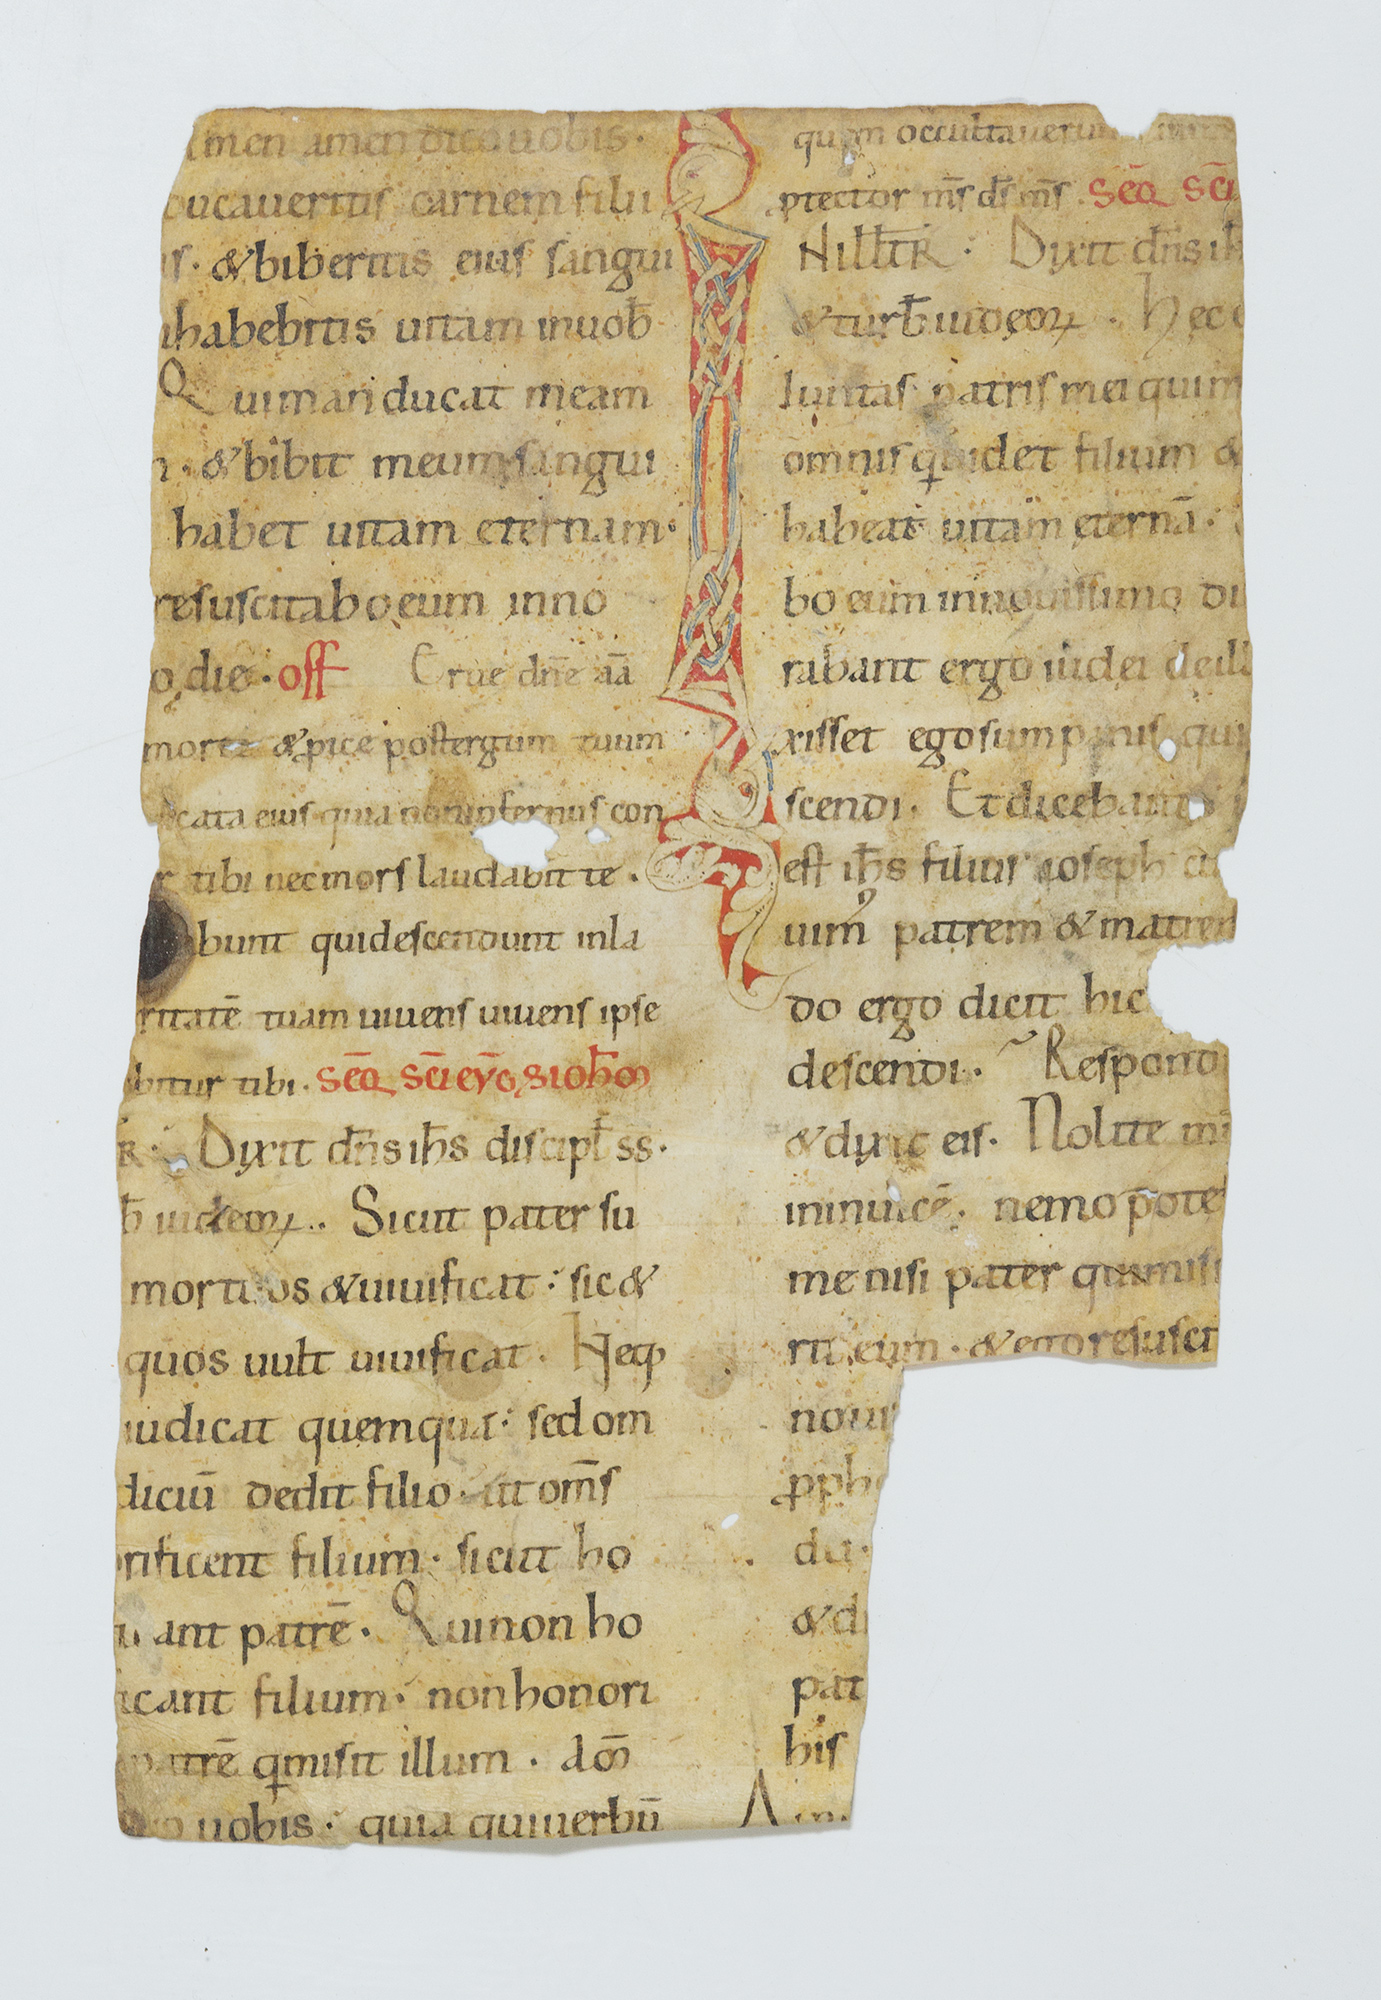 men amen dico uobis·
ducaueritis carnem filii
is· &biberitis eius sangui
habebitis uitam inuob̅
Quimanducat meam
n· &bibit meum sangui
habet uitam eternam·
resuscitaboeum inno
o die· off Erue dn̅e aā
morte &ꝓice postergum tuum
cata eius quia noninfernus con
r tibi necmors laudabit te·
bunt quidescendunt inla
ritatē tuam uiuens uiuens ipse
bitur tibi· Seq̅ Sc̅i
R· Dixit dn̅s ih̅s discipl̅ ss·
b̅ iudeoꝝ· Sicut pater su
mortuos &uiuificat: sic&
quos uult uiuificat· Neqꝫ
iudicat quemquā: sed om
diciū dedit filio· ut om̅s
rificent filium· sicut ho
ant patrē· Quinon ho
icant filium· nonhonori
patrē qͥmisit illum· am̅
uobis: quia quiuerbū
quem occultauerun
ꝓtector m̅s ds̅ m̅s· Seq̅ Sc̅i
Hill̅R· Dixit dn̅s ih̅
&turb̅ iudeoꝝ· Hec
luntas patris mei quim
omnis qͥ uidet filium &
habeat uitam eternā·
bo eum innouissimo di
rabant ergo iudei deill
xisset egosumpanis qui
scendi· Etdicebant
est ih̅s filius ioseph cu
uim̅ patrem & matrem
do ergo dicit hic
descendi· Respond
&dixit eis· Nolite m
ininuicē· nemo pote
me nisi pater quimisi
rit eum· &egoresusci
noui
ꝓph
di·
&d
pat
his